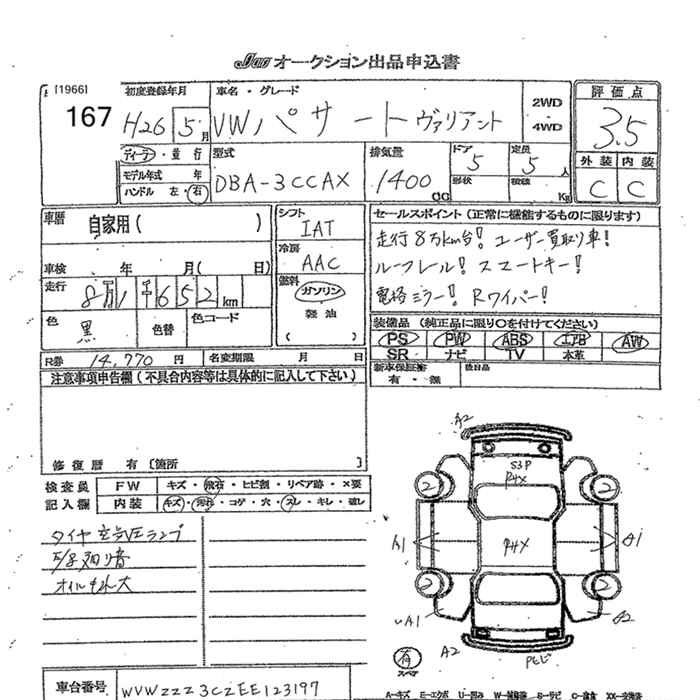 JAA オークション出品申込書
[1966]
167
初度登録年月
H26 5月
車名・グレード
VWパサートヴァリアント
2WD
4WD
評価点
3.5
外装 内装
C C
ディーラー・並行
モデル年式 年
ハンドル 左・右
型式
DBA-3CCAX
排気量
1400 CC
ドア
5
形状
定員
5人
積載
Kg
車歴
自家用( )
車検 年 月( 日)
走行
8万1千652km
色
黒
色替
色コード
シフト
IAT
冷房
AAC
燃料
ガソリン
軽油
( )
セールスポイント(正常に機能するものに限ります)
走行8万km台! ユーザー買取り車!
ルーフレール! スマートキー!
電格ミラー! Rワイパー!
装備品(純正品に限り○を付けてください)
PS PW ABS エアB AW
SR ナビ TV 本革
新車保証書
有・無
後日品
R券 14,770円 名変期限 月 日
注意事項申告欄(不具合内容等は具体的に記入して下さい)
修復歴 有〔箇所
検査員
記入欄
FW キズ・飛石・ヒビ割・リペア跡・×要
内装 キズ・汚れ・コゲ・穴・スレ・キレ・破れ
タイヤ空気圧ランプ
オイルもれ大
A2
S3P
P4X
P4X
2 2
A1 A1
2 2
A1 A2
A2
有
スペア
車台番号 WVWZZZ3CZEE123197
A-キズ E-エクボ U-凹み W-補修跡 S-サビ C-腐食 XX-交換済